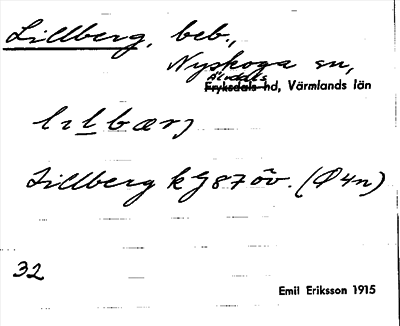 Lillberg, beb.,
Nyskoga sn,
Älvdals
Fryksdals hd, Värmlands län
Lillberg kG87öv. (Ø4n)
32
Emil Eriksson 1915